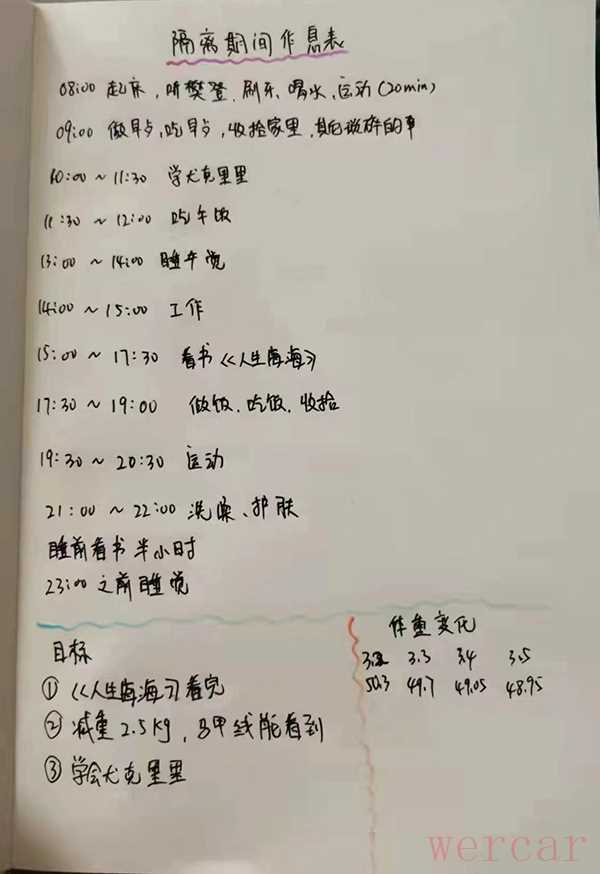 隔离期间作息表
08:00 起床，听樊登、刷牙、喝水、运动(20min)
09:00 做早点，吃早点，收拾家里，其它琐碎的事
10:00 ~ 11:30 学尤克里里
11:30 ~ 12:00 吃午饭
13:00 ~ 14:00 睡午觉
14:00 ~ 15:00 工作
15:00 ~ 17:30 看书《人生海海》
17:30 ~ 19:00 做饭、吃饭、收拾
19:30 ~ 20:30 运动
21:00 ~ 22:00 洗澡、护肤
睡前看书半小时
23:00 之前睡觉
目标
① 《人生海海》看完
② 减重 2.5kg，马甲线能看到
③ 学会尤克里里
体重变化
3.2 3.3 3.4 3.5
50.3 49.7 49.05 48.95
wercar